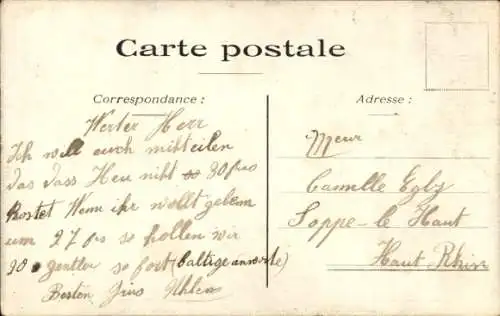 Carte postale
Correspondance :
Werter Herr
Ich will euch mitteilen
das dass Heu niht so 30 frcs
kostet Wenn ihr wollt gebem
um 27 frs so hollen wir
90 so fort (baltige anworte)
Besten
Adresse :
Meur
Camille Egly
Soppe-le Haut
Haut Rhin